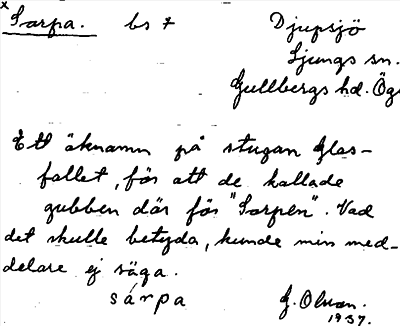 x
Sarpa. bs 7 Djupsjö
Ljungs sn.
Gullbergs hd. Ög
Ett öknamn på stugan Glas-
fallet, för att de kallade
gubben där för "Sarpen". Vad
det skulle betyda, kunde min med-
delare ej säga.
sárpa G. Olson.
1937.